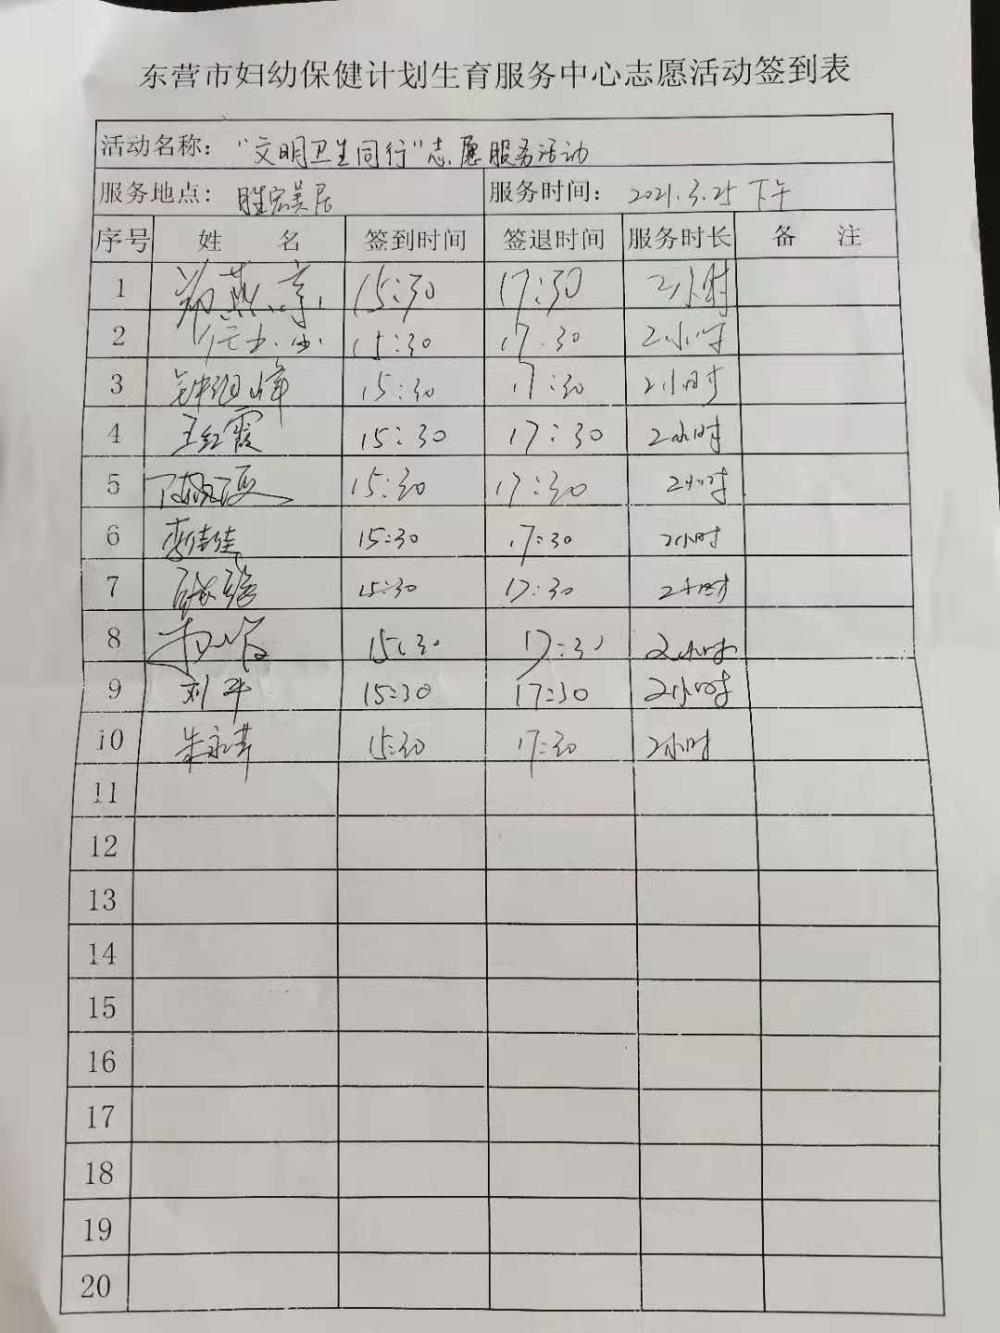 东营市妇幼保健计划生育服务中心志愿活动签到表
活动名称："文明卫生同行"志愿服务活动
服务地点：胜宏美居 服务时间：2021.3.25 下午
序号 姓 名 签到时间 签退时间 服务时长 备 注
1 郑燕 15:30 17:30 2小时
2 15:30 17.30 2小时
3 15:30 17:30 2小时
4 王红霞 15:30 17:30 2小时
5 15:30 17:30 2小时
6 李佳佳 15:30 17:30 2小时
7 15:30 17:30 2小时
8 15:30 17:30 2小时
9 刘平 15:30 17:30 2小时
10 朱永 15:30 17:30 2小时
11
12
13
14
15
16
17
18
19
20